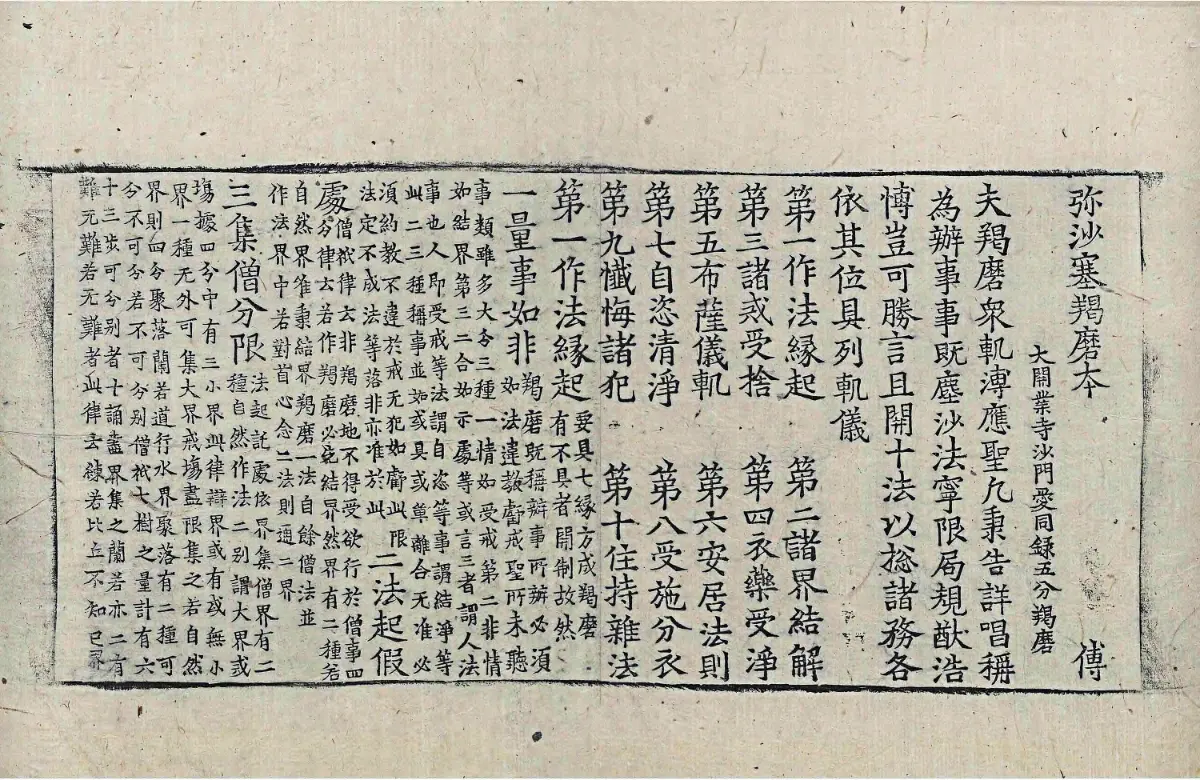 弥沙塞羯磨本　傅
大開業寺沙門愛同録五分羯磨
夫羯磨衆軌溥應聖凢秉告詳唱稱
為辦事事既塵沙法寧限局規猷浩
博豈可勝言且開十法以捴諸務各
依其位具列軌儀
第一作法縁起　第二諸界結解
第三諸戒受捨　第四衣藥受淨
第五布薩儀軌　第六安居法則
第七自恣清淨　第八受施分衣
第九懺悔諸犯　第十住持雜法
第一作法縁起　要具七縁方成羯磨
有不具者開制故然
一量事如非　羯磨既稱辦事所辦必湏
如法違教齗戒聖所未聽
事類雖多大分三種一情如受戒第二非情
如結界第三二合如示處等或言三者謂人法
事也人即受戒等法謂自恣等事謂結淨等
此二三種稱事並如或具或單離合无准必
湏約教不違於戒无犯如齗此限
法定不成法等落非亦准於此
二法起假
處　僧祇律云非羯磨地不得受欲行於僧事四
分律云若作羯磨必先結界然界有二種若
自然界唯秉結界羯磨一法自餘僧法並
作法界中若對首心念二法則通二界
三集僧分限　法起託處依界集僧界有二
種自然作法二別謂大界或
塲據四分中有三小界此律辯界或有或無小
界一種无外可集大界戒塲盡限集之若自然
界則四分聚落蘭若道行水界聚落有二種可
分不可分若不可分別僧祇七樹之量計有六
十三步可分別者十誦盡界集之蘭若亦二有
難无難若无難者此律云練若比丘不知已界